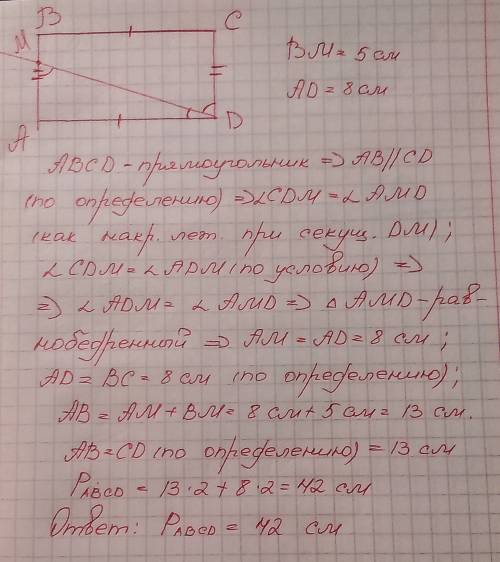 B
C
M
A
D
BM = 5 см
AD = 8 см
ABCD - прямоугольник => AB//CD
(по определению) => ∠CDM = ∠AMD
(как накр. леж. при секущ. DM);
∠CDM = ∠ADM (по условию) =>
=> ∠ADM = ∠AMD => △AMD - рав-
нобедренный => AM = AD = 8 см;
AD = BC = 8 см (по определению);
AB = AM + BM = 8 см + 5 см = 13 см.
AB = CD (по определению) = 13 см
PABCD = 13·2 + 8·2 = 42 см
Ответ: PABCD = 42 см